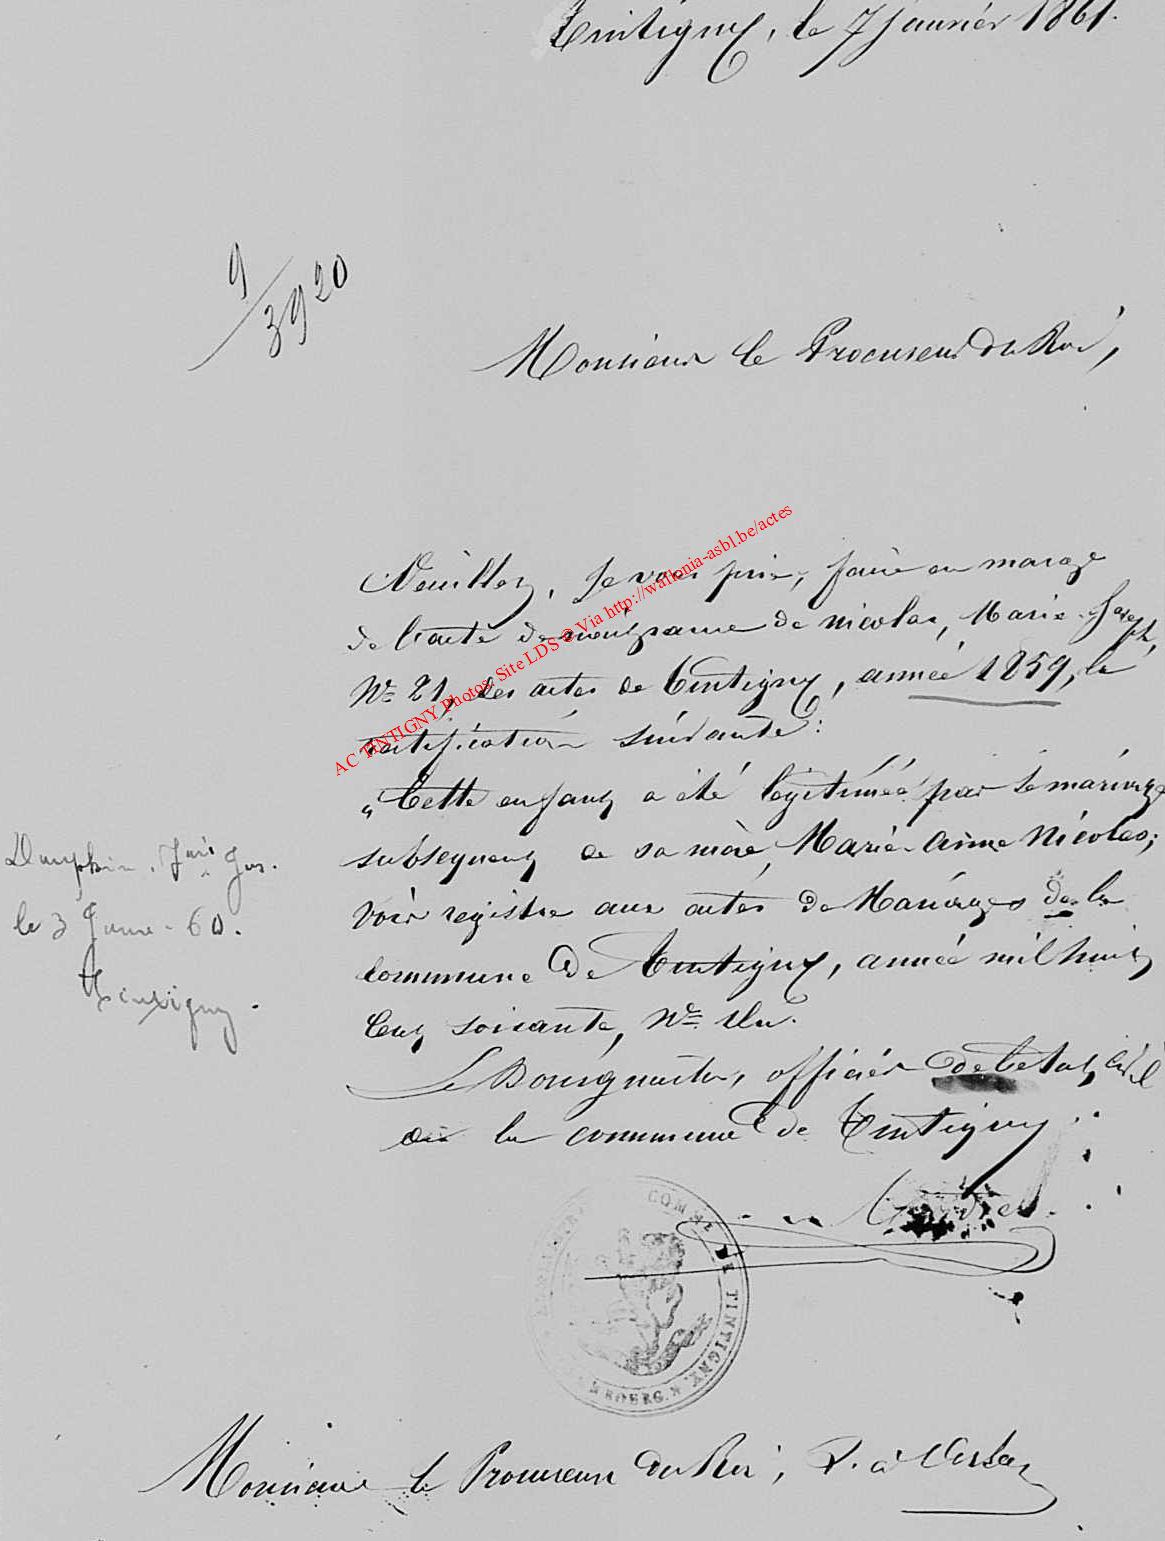 Tintigny, le 7 janvier 1861.
9/3920
Monsieur le Procureur du Roi,
Veuillez, Je vous prie, faire en marge
de l'acte de naissance de Nicolas, Marie-Joseph,
N° 21, des actes de Tintigny, année 1859, la
rectification suivante :
"Cette enfant a été légitimée par le mariage
subsequent de sa mère, Marie-Anne Nicolas;
voir registre aux actes de Mariages de la
commune de Tintigny, année mil huit
cent soixante, N° Un.
Le Bourgmestre, officier de l'etat civil
de la commune de Tintigny
Dauphin, Jos.
le 3 Janv. 60.
Tintigny.
COMNE DE TINTIGNY
Monsieur le Procureur du Roi, P. à Arlon
AC TINTIGNY Photos. Site LDS @ Via http://wallonia-asbl.be/actes